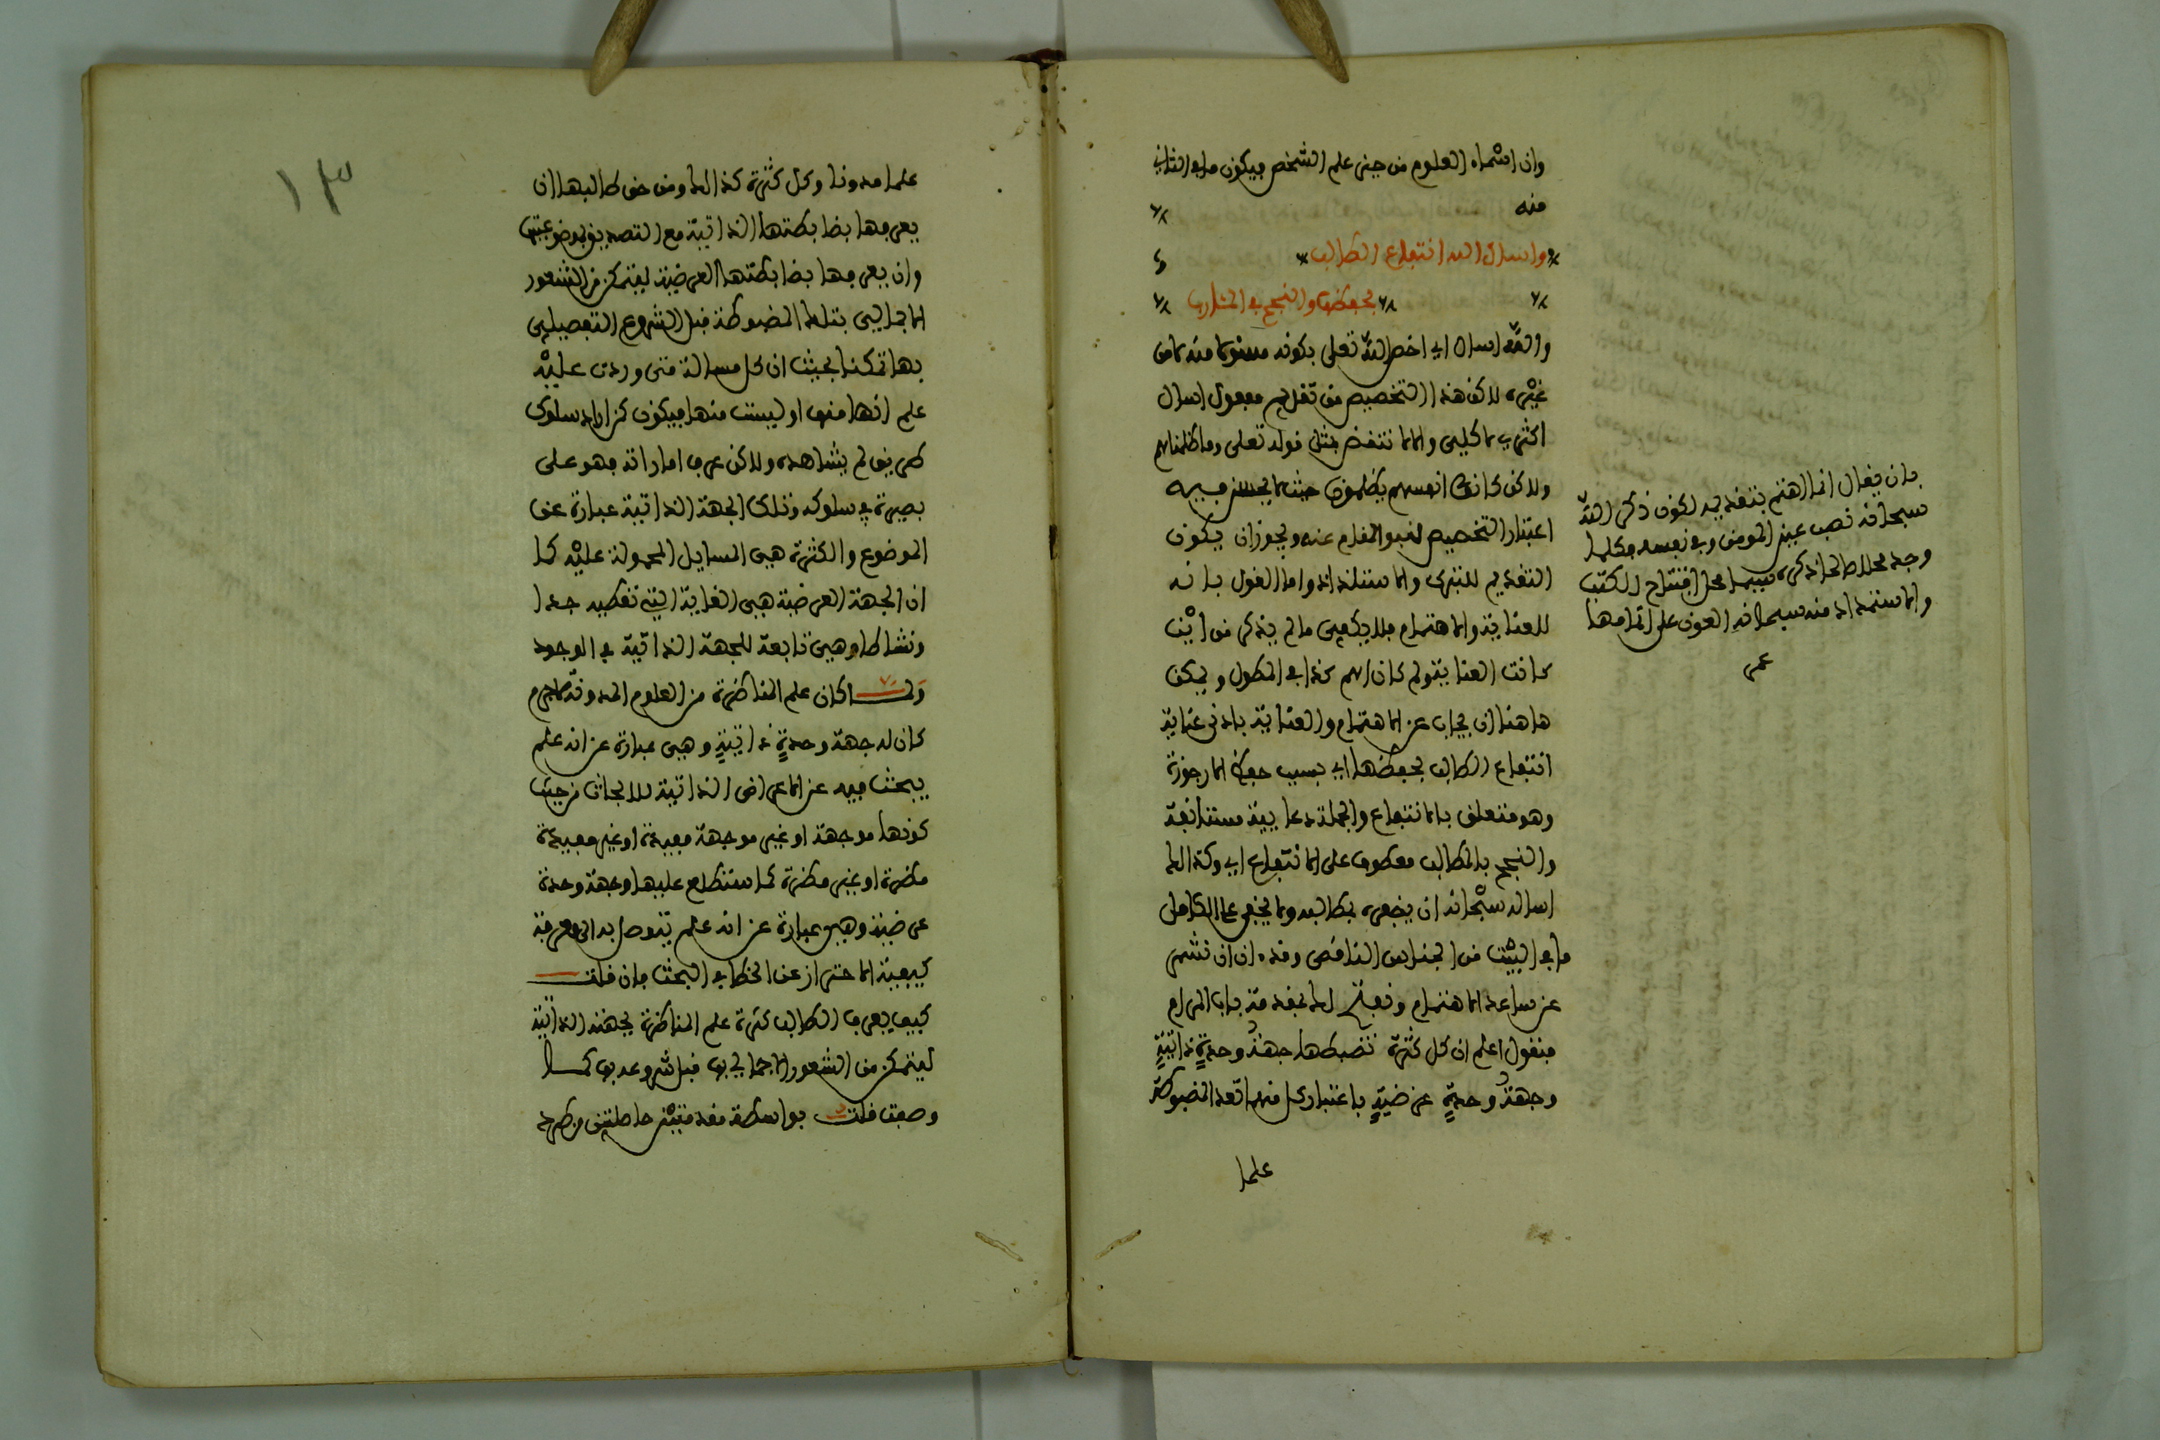 وان اسماء العلوم من جنس علم الشخص فيكون ما في الثاني
منه
واسال الله انتفاع الطالب
بحفظها والنجح في المطالب
والله اسال اي اخص الله تعلى بكونه مسئولا منه لا من
غيره لاكن هذا التخصيص من تقديم مفعول اسال
اكثري لا كلي والا لا نتقض بمثل قوله تعلى وما ظلمناهم
ولاكن كانوا انفسهم يظلمون حيث لا يحسن فيه
اعتبار التخصيص لنبو المقام عنه ويجوز ان يكون
التقديم للتبرك والاستلذاذ واما القول بانه
للعناية والاهتمام فلا يكفي ما لم يذكر من اين
كانت العناية ولم كان اهم كذا في المطول ويمكن
هاهنا ان يجاب عن الاهتمام والعناية بادنى عناية
انتفاع الطالب بحفظها اي بسبب حفظ الارجوزة
وهو متعلق بالانتفاع والجملة دعايية مستانفة
والنجح بالمطالب معطوف على الانتفاع اي وكذالك
اساله سبحانه ان يظفره بمطالبه ولا يخفى على الكامل
ما في البيت من الجناس الناقص وقد ءان ان نشمر
عن ساعد الاهتمام ونفتح لك بمقدمة باب المرام
فنقول اعلم ان كل كثرة تضبطها جهة وحدة ذاتية
وجهة وحدة عرضية باعتبار كل منهما تعد المضبوطة
علما
فان يقال انما اهتم بتقديمه لكون ذكر الله
سبحانه نصب عين المومن وفي نفسه فكلما
وجد محلا صالحا ذكره سيما محل افتتاح الكتب
والاستمداد منه سبحانه العون على اتمامها
عمر
١٣
علما مدونا وكل كثرة كذالك ومن حق طالبها ان
يعرفها بضابطتها الذاتية مع التصديق بموضوعيتها
وان يعرفها بضابطتها العرضية ليتمكن من الشعور
الاجمالي بتلك المضبوطة قبل الشروع التفصيلي
بها تمكنا بحيث ان كل مسالة متى وردت عليه
علم انها منها او ليست منها فيكون كمن اراد سلوك
طريق لم يشاهده ولاكن عرف اماراته فهو على
بصيرة في سلوكه وتلك الجهة الذاتية عبارة عن
الموضوع والكثرة هي المسايل المحمولة عليه كما
ان الجهة العرضية هي الغاية التي تعطيه جدا
ونشاطا وهي تابعة للجهة الذاتية في الوجود
ولما كان علم المناظرة من العلوم المدونة لا جرم
كان له جهة وحدة ذاتية وهي عبارة عن انه علم
يبحث فيه عن الاعراض الذاتية للابحاث من حيث
كونها موجهة او غير موجهة مفيدة او غير مفيدة
مضرة او غير مضرة كما ستطلع عليها وجهة وحدة
عرضية وهي عبارة عن انه علم يتوصل به الى معرفة
كيفية الاحتراز عن الخطا في البحث فان قلت
كيف يعرف الطالب كثرة علم المناظرة بجهته الذاتية
ليتمكن من الشعور الاجمالي بها قبل شروعه بها كما
وصفت قلت بواسطة مقدمتين حاصلتين